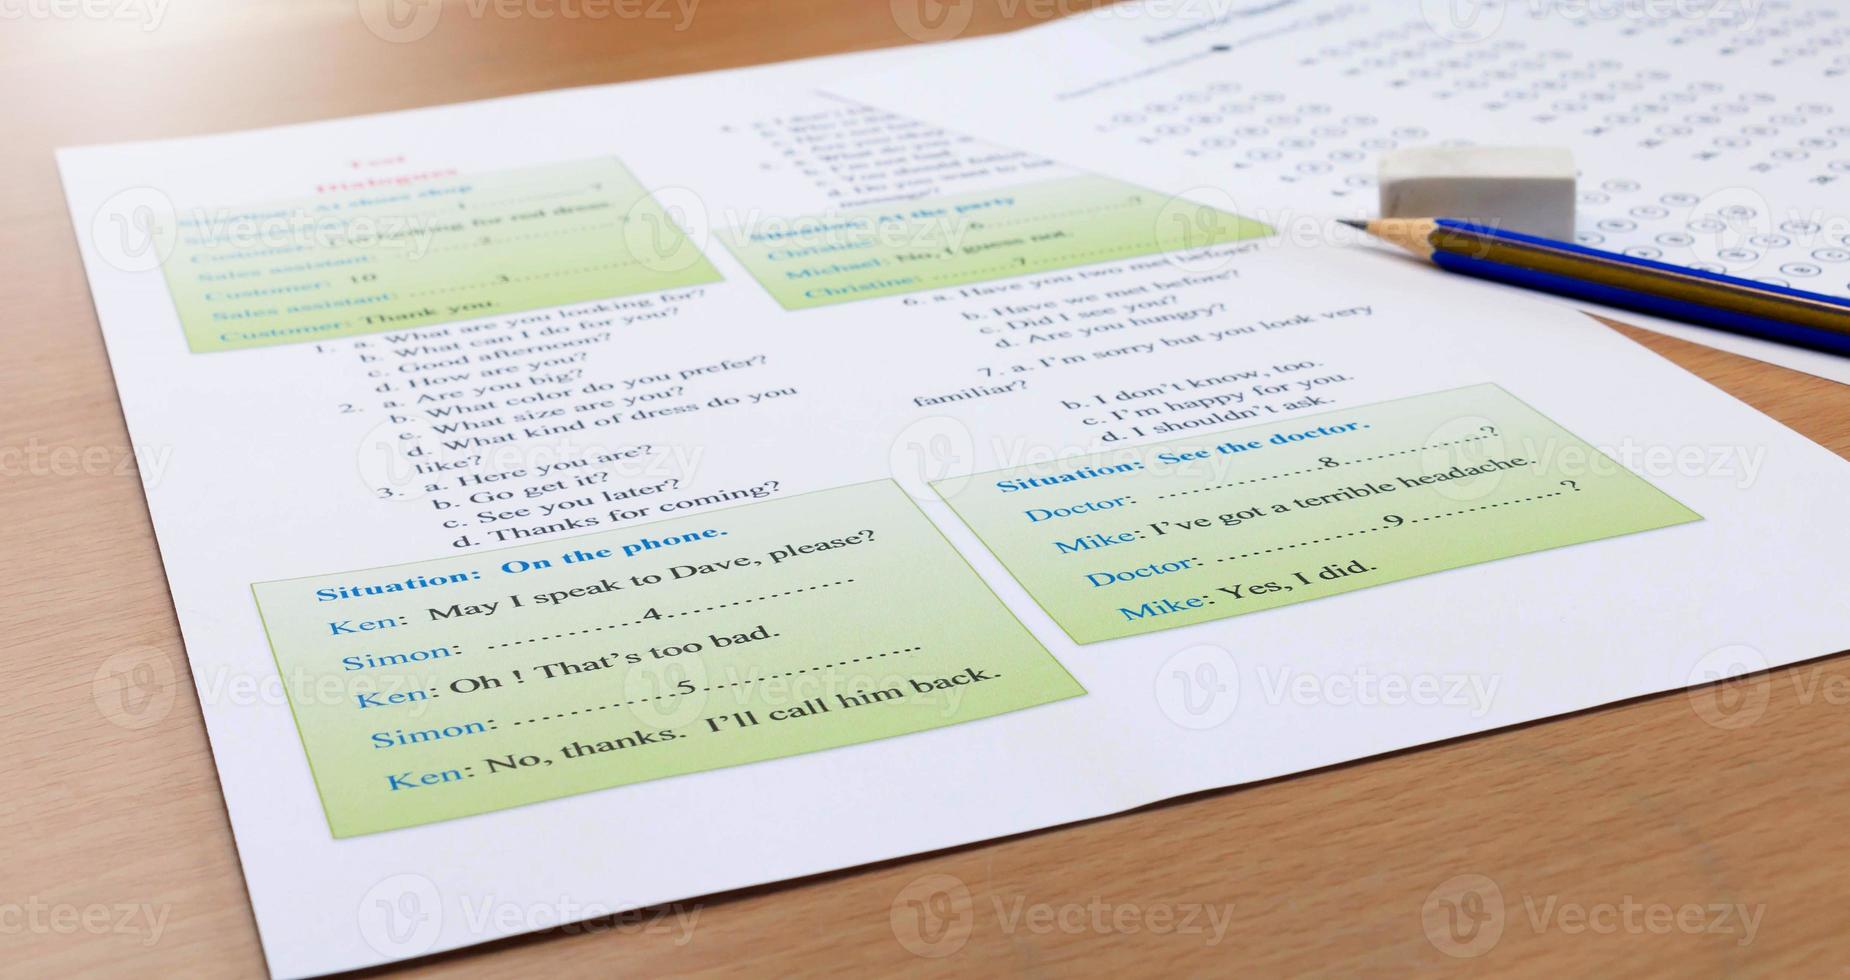 Test
Dialogues
Situation: At shoes shop
1 ?
Customer: I'm looking for red dress.
Sales assistant: ..........2.......... ?
Customer: 10
Sales assistant: ..........3..........
Customer: Thank you.
1. a. What are you looking for?
b. What can I do for you?
c. Good afternoon?
d. How are you?
2. a. Are you big?
b. What color do you prefer?
c. What size are you?
d. What kind of dress do you
like?
3. a. Here you are?
b. Go get it?
c. See you later?
d. Thanks for coming?
Situation: On the phone.
Ken: May I speak to Dave, please?
Simon: ............4..............
Ken: Oh ! That's too bad.
Simon: .............5.................
Ken: No, thanks. I'll call him back.
d. Do you want to
message?
Situation: At the party
Christine: ..........6.......... ?
Michael: No, I guess not.
Christine: .........7..........
6. a. Have you two met before?
b. Have we met before?
c. Did I see you?
d. Are you hungry?
7. a. I'm sorry but you look very
familiar?
b. I don't know, too.
c. I'm happy for you.
d. I shouldn't ask.
Situation: See the doctor.
Doctor: .............8............?
Mike: I've got a terrible headache.
Doctor: .............9.............?
Mike: Yes, I did.
Vecteezy